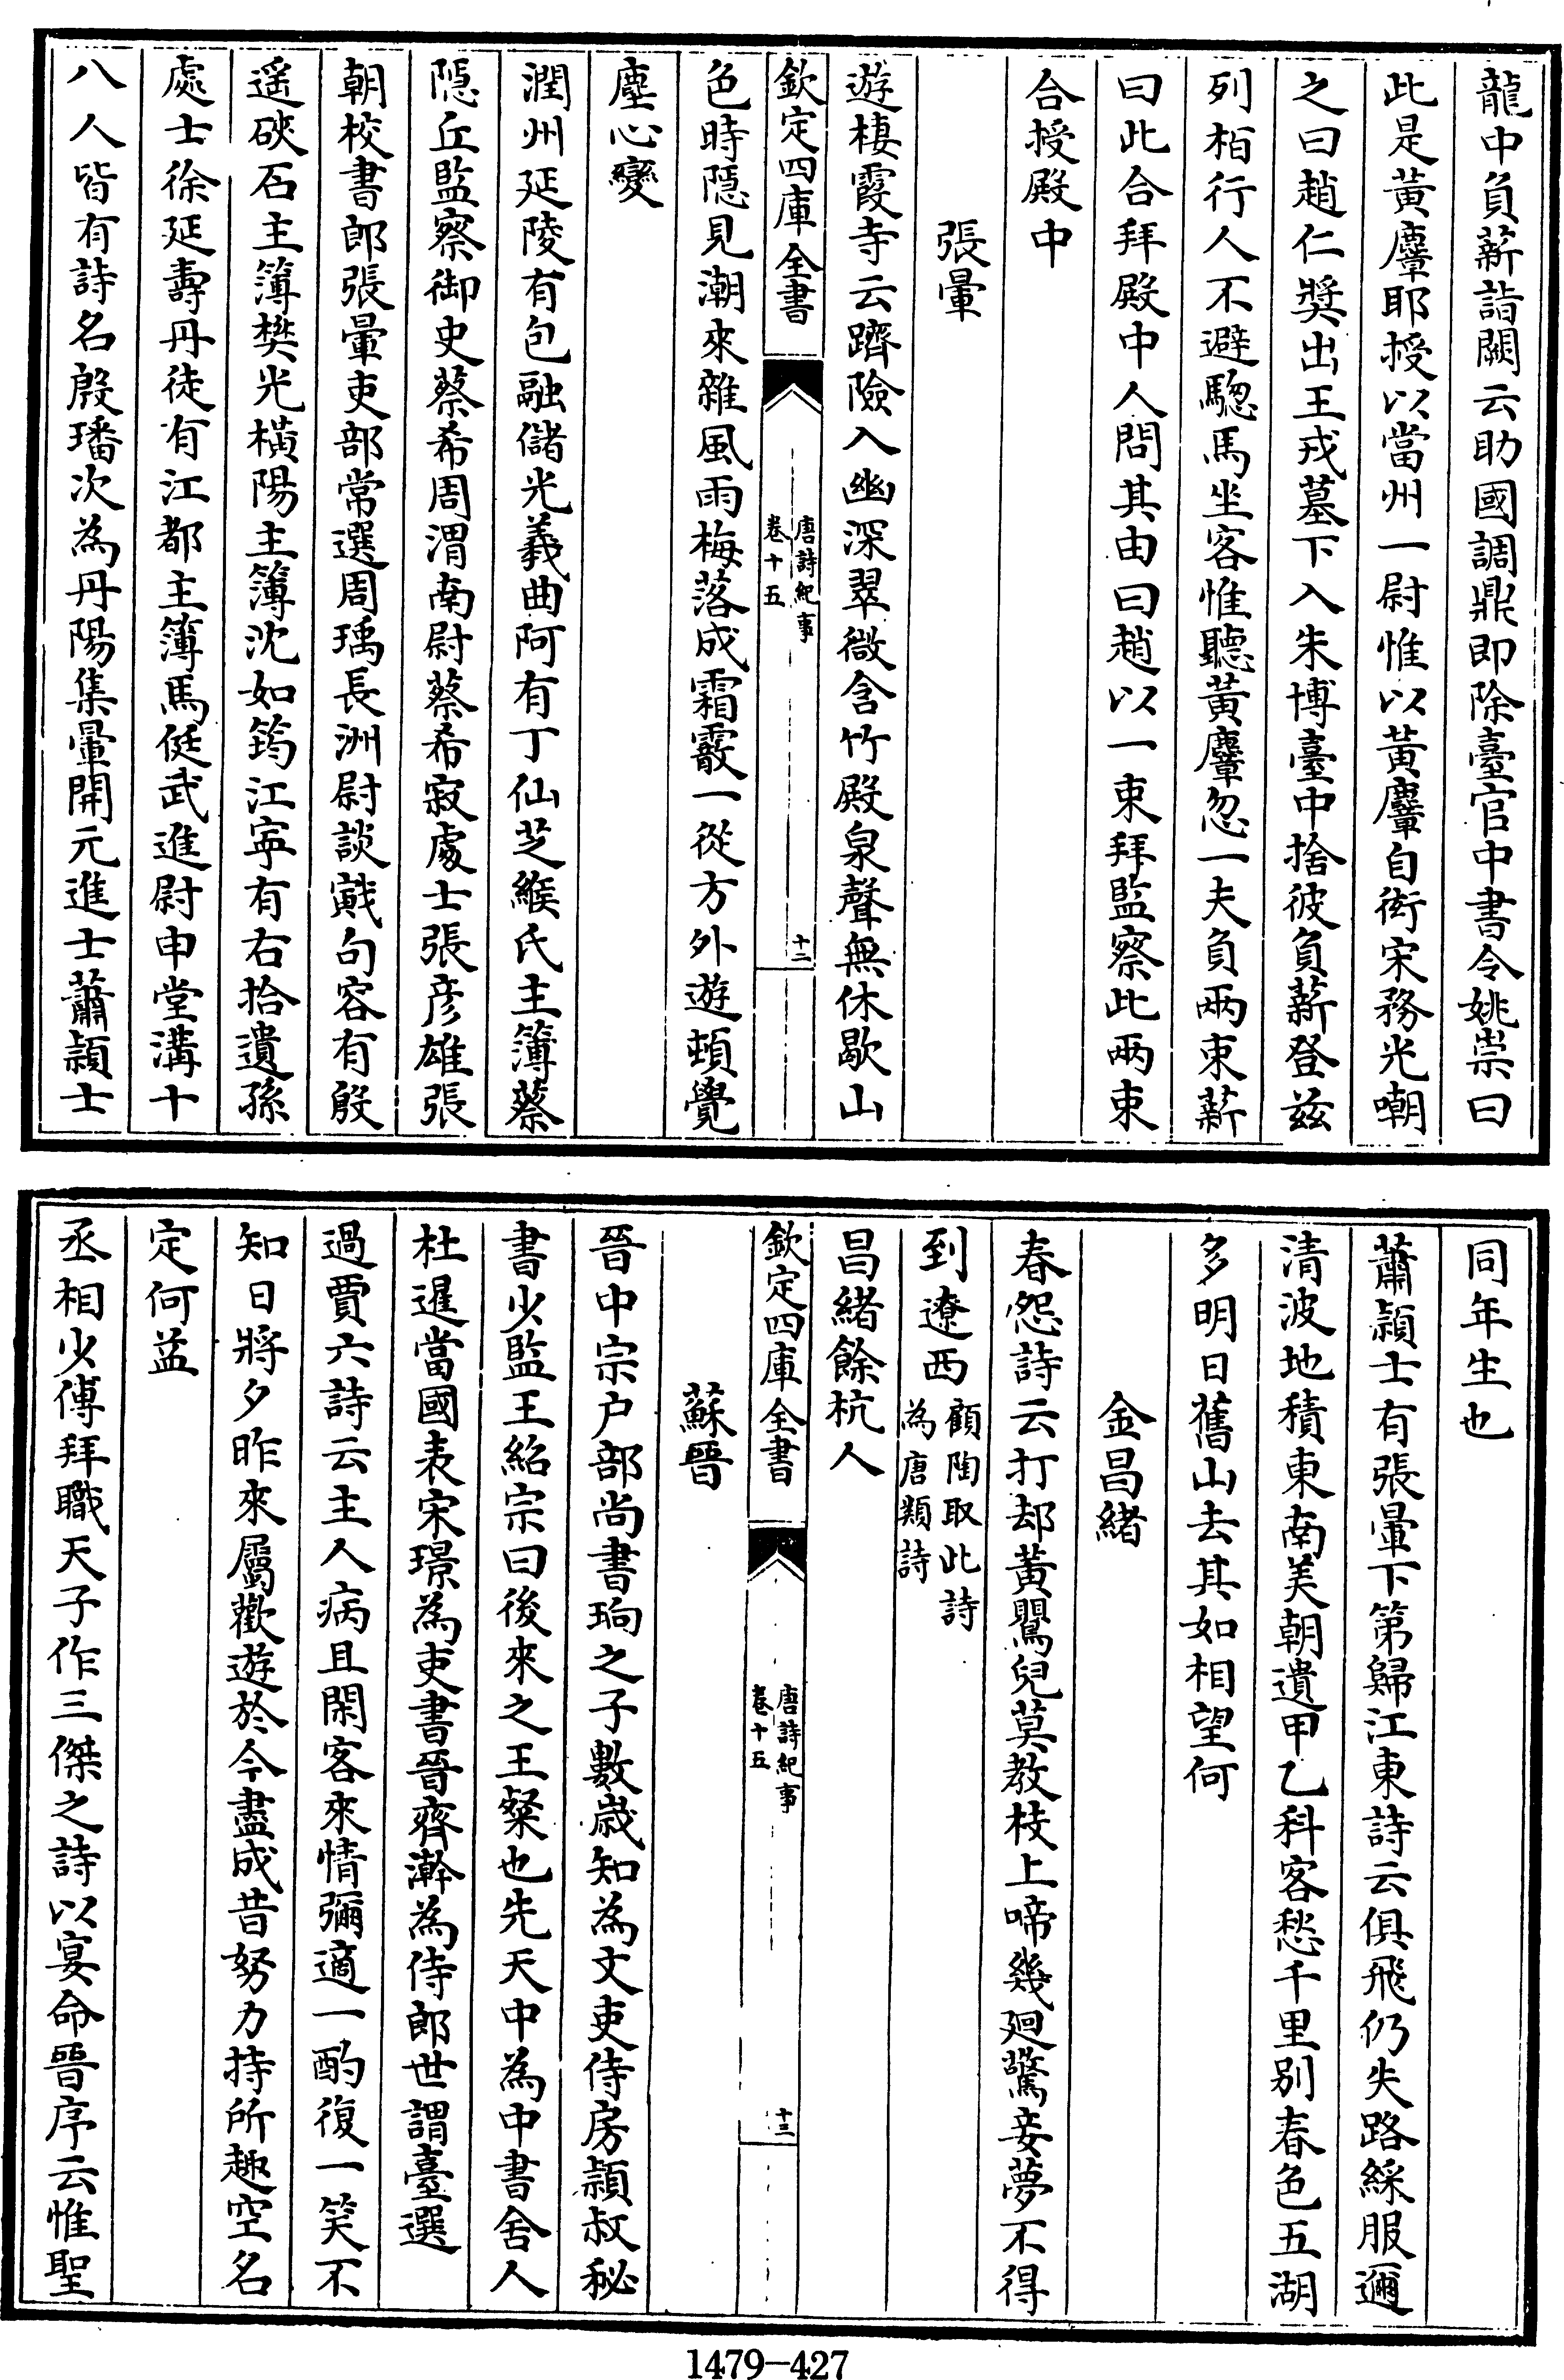 龍中負薪詣闕云助國調鼎即除臺官中書令姚崇曰
此是黃麞耶授以當州一尉惟以黃麞自衒宋務光嘲
之曰趙仁奬出王戎墓下入朱博臺中捨彼負薪登茲
列栢行人不避驄馬坐客惟聽黃麞忽一夫負兩束薪
曰此合拜殿中人問其由曰趙以一束拜監察此兩束
合授殿中
張暈
遊棲霞寺云躋險入幽深翠微含竹殿泉聲無休歇山
欽定四庫全書
唐詩紀事
卷十五
十二
色時隱見潮來雜風雨梅落成霜霰一從方外遊頓覺
塵心變
潤州延陵有包融儲光羲曲阿有丁仙芝緱氏主簿蔡
隱丘監察御史蔡希周渭南尉蔡希寂處士張彦雄張
朝校書郎張暈吏部常選周瑀長洲尉談戭句容有殷
遥硤石主簿樊光橫陽主簿沈如筠江寧有右拾遺孫
處士徐延壽丹徒有江都主簿馬侹武進尉申堂溝十
八人皆有詩名殷璠次為丹陽集暈開元進士蕭頴士
同年生也
蕭頴士有張暈下第歸江東詩云俱飛仍失路綵服邇
清波地積東南美朝遺甲乙科客愁千里别春色五湖
多明日舊山去其如相望何
金昌緒
春怨詩云打却黃鸎兒莫教枝上啼幾廻驚妾夢不得
到遼西
顧陶取此詩
為唐類詩
昌緒餘杭人
欽定四庫全書
唐詩紀事
卷十五
十三
蘇晉
晉中宗户部尚書珦之子數歲知為文吏侍房頴叔秘
書少監王紹宗曰後來之王粲也先天中為中書舍人
杜暹當國表宋璟為吏書晉齊澣為侍郎世謂臺選
過賈六詩云主人病且閑客來情彌適一酌復一笑不
知日將夕昨來屬歡遊於今盡成昔努力持所趣空名
定何益
丞相少傅拜職天子作三傑之詩以宴命晉序云惟聖
1479-427